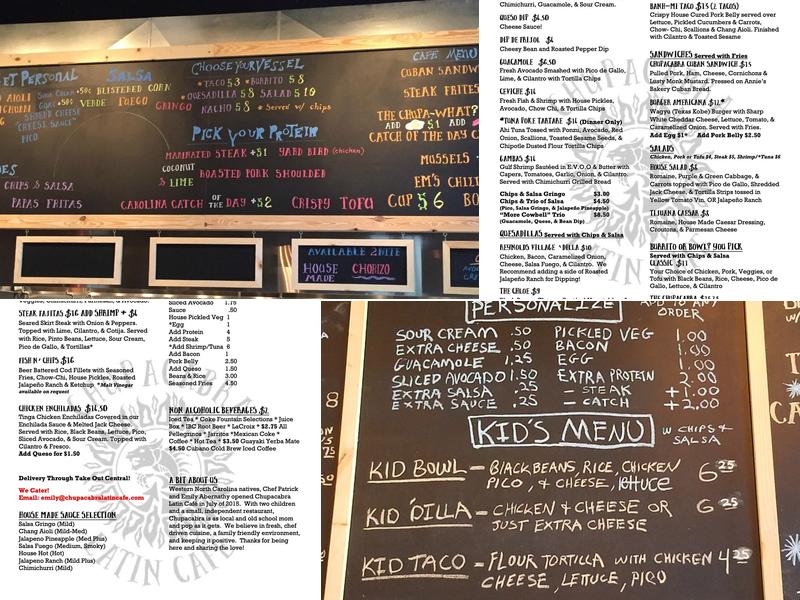 ET PERSONAL
SALSA
CHOOSE YOUR VESSEL
CAFE MENU
AIOLI
SOUR CREAM +50¢
BLISTERED CORN
* TACO 5 8 * BURRITO 5 8
CUBAN SANDW
VERDE FUEGO GRINGO
* QUESADILLA 5 8 SALAD 5 10
STEAK FRITES
SHREDD CHEESE
"CHEESE SAUCE"
PICO
NACHO 5 8 * Served w/ chips
THE CHUPA-WHAT?
ADD $1 ADD
PICK YOUR PROTEIN
CATCH OF THE DAY
MARINATED STEAK +$1 YARD BIRD (chicken)
MUSSELS
COCONUT & LIME ROASTED PORK SHOULDER
EM'S CHILI
CHIPS & SALSA
PAPAS FRITAS
CAROLINA CATCH OF THE DAY +$2 CRISPY TOFU
CUP $6 BO
AVAILABLE 2NITE
HOUSE MADE CHORIZO
AVA
Chimichurri, Guacamole, & Sour Cream.
QUESO DIP $4.50
Cheese Sauce!
DIP DE FRIJOL $4
Cheesy Bean and Roasted Pepper Dip
GUACAMOLE $6.50
Fresh Avocado Smashed with Pico de Gallo,
Lime, & Cilantro with Tortilla Chips
CEVICHE $16
Fresh Fish & Shrimp with House Pickles,
Avocado, Chow Chi, & Tortilla Chips
*TUNA POKE TARTARE $16 (Dinner Only)
Ahi Tuna Tossed with Ponzu, Avocado, Red
Onion, Scallions, Toasted Sesame Seeds, &
Chipotle Dusted Flour Tortilla Chips
GAMBAS $16
Gulf Shrimp Sautéed in E.V.O.O & Butter with
Capers, Tomatoes, Garlic, Onion, & Cilantro.
Served with Chimichurri Grilled Bread
Chips & Salsa Gringo $3.90
Chips & Trio of Salsa $4.50
(Pico, Salsa Gringo, & Jalapeño Pineapple)
"More Cowbell" Trio $8.50
(Guacamole, Queso, & Bean Dip)
QUESADILLAS Served with Chips & Salsa
REYNOLDS VILLAGE 'DILLA $10
Chicken, Bacon, Caramelized Onion,
Cheese, Salsa Fuego, & Cilantro. We
Recommend adding a side of Roasted
Jalapeño Ranch for Dipping!
THE CHLOE $9
BANH-MI TACO $15 (2 TACOS)
Crispy House Cured Pork Belly served over
Lettuce, Pickled Cucumbers & Carrots,
Chow- Chi, Scallions & Chang Aioli. Finished
with Cilantro & Toasted Sesame
SANDWICHES Served with Fries
CHUPACABRA CUBAN SANDWICH $15
Pulled Pork, Ham, Cheese, Cornichons &
Lusty Monk Mustard. Pressed on Annie's
Bakery Cuban Bread.
BURGER AMERICANA $12*
Wagyu (Texas Kobe) Burger with Sharp
White Cheddar Cheese, Lettuce, Tomato, &
Caramelized Onion. Served with Fries.
Add Egg $1* Add Pork Belly $2.50
SALADS
Chicken, Pork or Tofu $4, Steak $5, Shrimp/*Tuna $6
HOUSE SALAD $8
Romaine, Purple & Green Cabbage, &
Carrots topped with Pico de Gallo, Shredded
Jack Cheese, & Tortilla Strips tossed in
Yellow Tomato Vin. OR Jalapeño Ranch
TIJUANA CAESAR $8
Romaine, House Made Caesar Dressing,
Croutons, & Parmesan Cheese
BURRITO OR BOWL? YOU PICK
Served with Chips & Salsa
CLASSIC $11
Your Choice of Chicken, Pork, Veggies, or
Tofu with Black Beans, Rice, Cheese, Pico de
Gallo, Lettuce, & Cilantro
STEAK FAJITAS $16 ADD SHRIMP + $6
Seared Skirt Steak with Onion & Peppers.
Topped with Lime, Cilantro, & Cotija. Served
with Rice, Pinto Beans, Lettuce, Sour Cream,
Pico de Gallo, & Tortillas*
FISH N' CHIPS $16
Beer Battered Cod Fillets with Seasoned
Fries, Chow-Chi, House Pickles, Roasted
Jalapeño Ranch & Ketchup *Malt Vinegar
available on request
CHICKEN ENCHILADAS $14.50
Tinga Chicken Enchiladas Covered in our
Enchilada Sauce & Melted Jack Cheese.
Served with Rice, Black Beans, Lettuce, Pico,
Sliced Avocado, & Sour Cream. Topped with
Cilantro & Fresco.
Add Queso for $1.50
Delivery Through Take Out Central!
We Cater!
Email: emily@chupacabralatincafe.com
HOUSE MADE SAUCE SELECTION
Salsa Gringo (Mild)
Chang Aioli (Mild-Med)
Jalapeno Pineapple (Med Plus)
Salsa Fuego (Medium, Smoky)
House Hot (Hot)
Jalapeno Ranch (Mild Plus)
Chimichurri (Mild)
Sliced Avocado 1.75
Sauce .50
House Pickled Veg 1
*Egg 1
Add Protein 4
Add Steak 5
*Add Shrimp/Tuna 6
Add Bacon 1
Pork Belly 2.50
Add Queso 1.50
Beans & Rice 3.00
Seasoned Fries 4.50
NON ALCOHOLIC BEVERAGES $2
Iced Tea * Coke Fountain Selections * Juice
Box * IBC Root Beer * LaCroix * $2.75 All
Pellegrinos * Jarritos *Mexican Coke *
Coffee * Hot Tea * $3.50 Guayaki Yerba Mate
$4.50 Cubano Cold Brew Iced Coffee
A BIT ABOUT US
Western North Carolina natives, Chef Patrick
and Emily Abernathy opened Chupacabra
Latin Café in July of 2015. With two children
and a small, independent restaurant,
Chupacabra is as local and old school mom
and pop as it gets. We believe in fresh, chef
driven cuisine, a family friendly environment,
and keeping it positive. Thanks for being
here and sharing the love!
CHUPACABRA
LATIN CAFE
PERSONALIZE ADD TO ANY ORDER
SOUR CREAM .50 PICKLED VEG 1.00
EXTRA CHEESE .50 BACON 1.00
GUACAMOLE 1.25 EGG 1.00
SLICED AVOCADO 1.50 EXTRA PROTEIN 2.00
EXTRA SALSA .25 - STEAK +1.00
EXTRA SAUCE .25 - CATCH +2.00
KID'S MENU W/ CHIPS + SALSA
KID BOWL - BLACK BEANS, RICE, CHICKEN
PICO, & CHEESE, lettuce 6 25
KID 'DILLA - CHICKEN & CHEESE OR 6 25
JUST EXTRA CHEESE
KID TACO - FLOUR TORTILLA WITH CHICKEN 4 25
CHEESE, LETTUCE, PICO